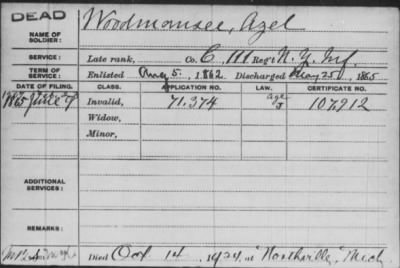 DEAD
NAME OF SOLDIER: Woodmansee, Azel
SERVICE: Late rank, Co. C, 111 Reg't N. Y. Inf.
TERM OF SERVICE: Enlisted Aug 5, 1862, Discharged May 25, 1865
DATE OF FILING. CLASS. APPLICATION NO. LAW. CERTIFICATE NO.
1865 June 7 Invalid, 71,374 107,912
Widow,
Minor,
ADDITIONAL SERVICES:
REMARKS:
Died Oct 14, 1924, at "Northville" Mich